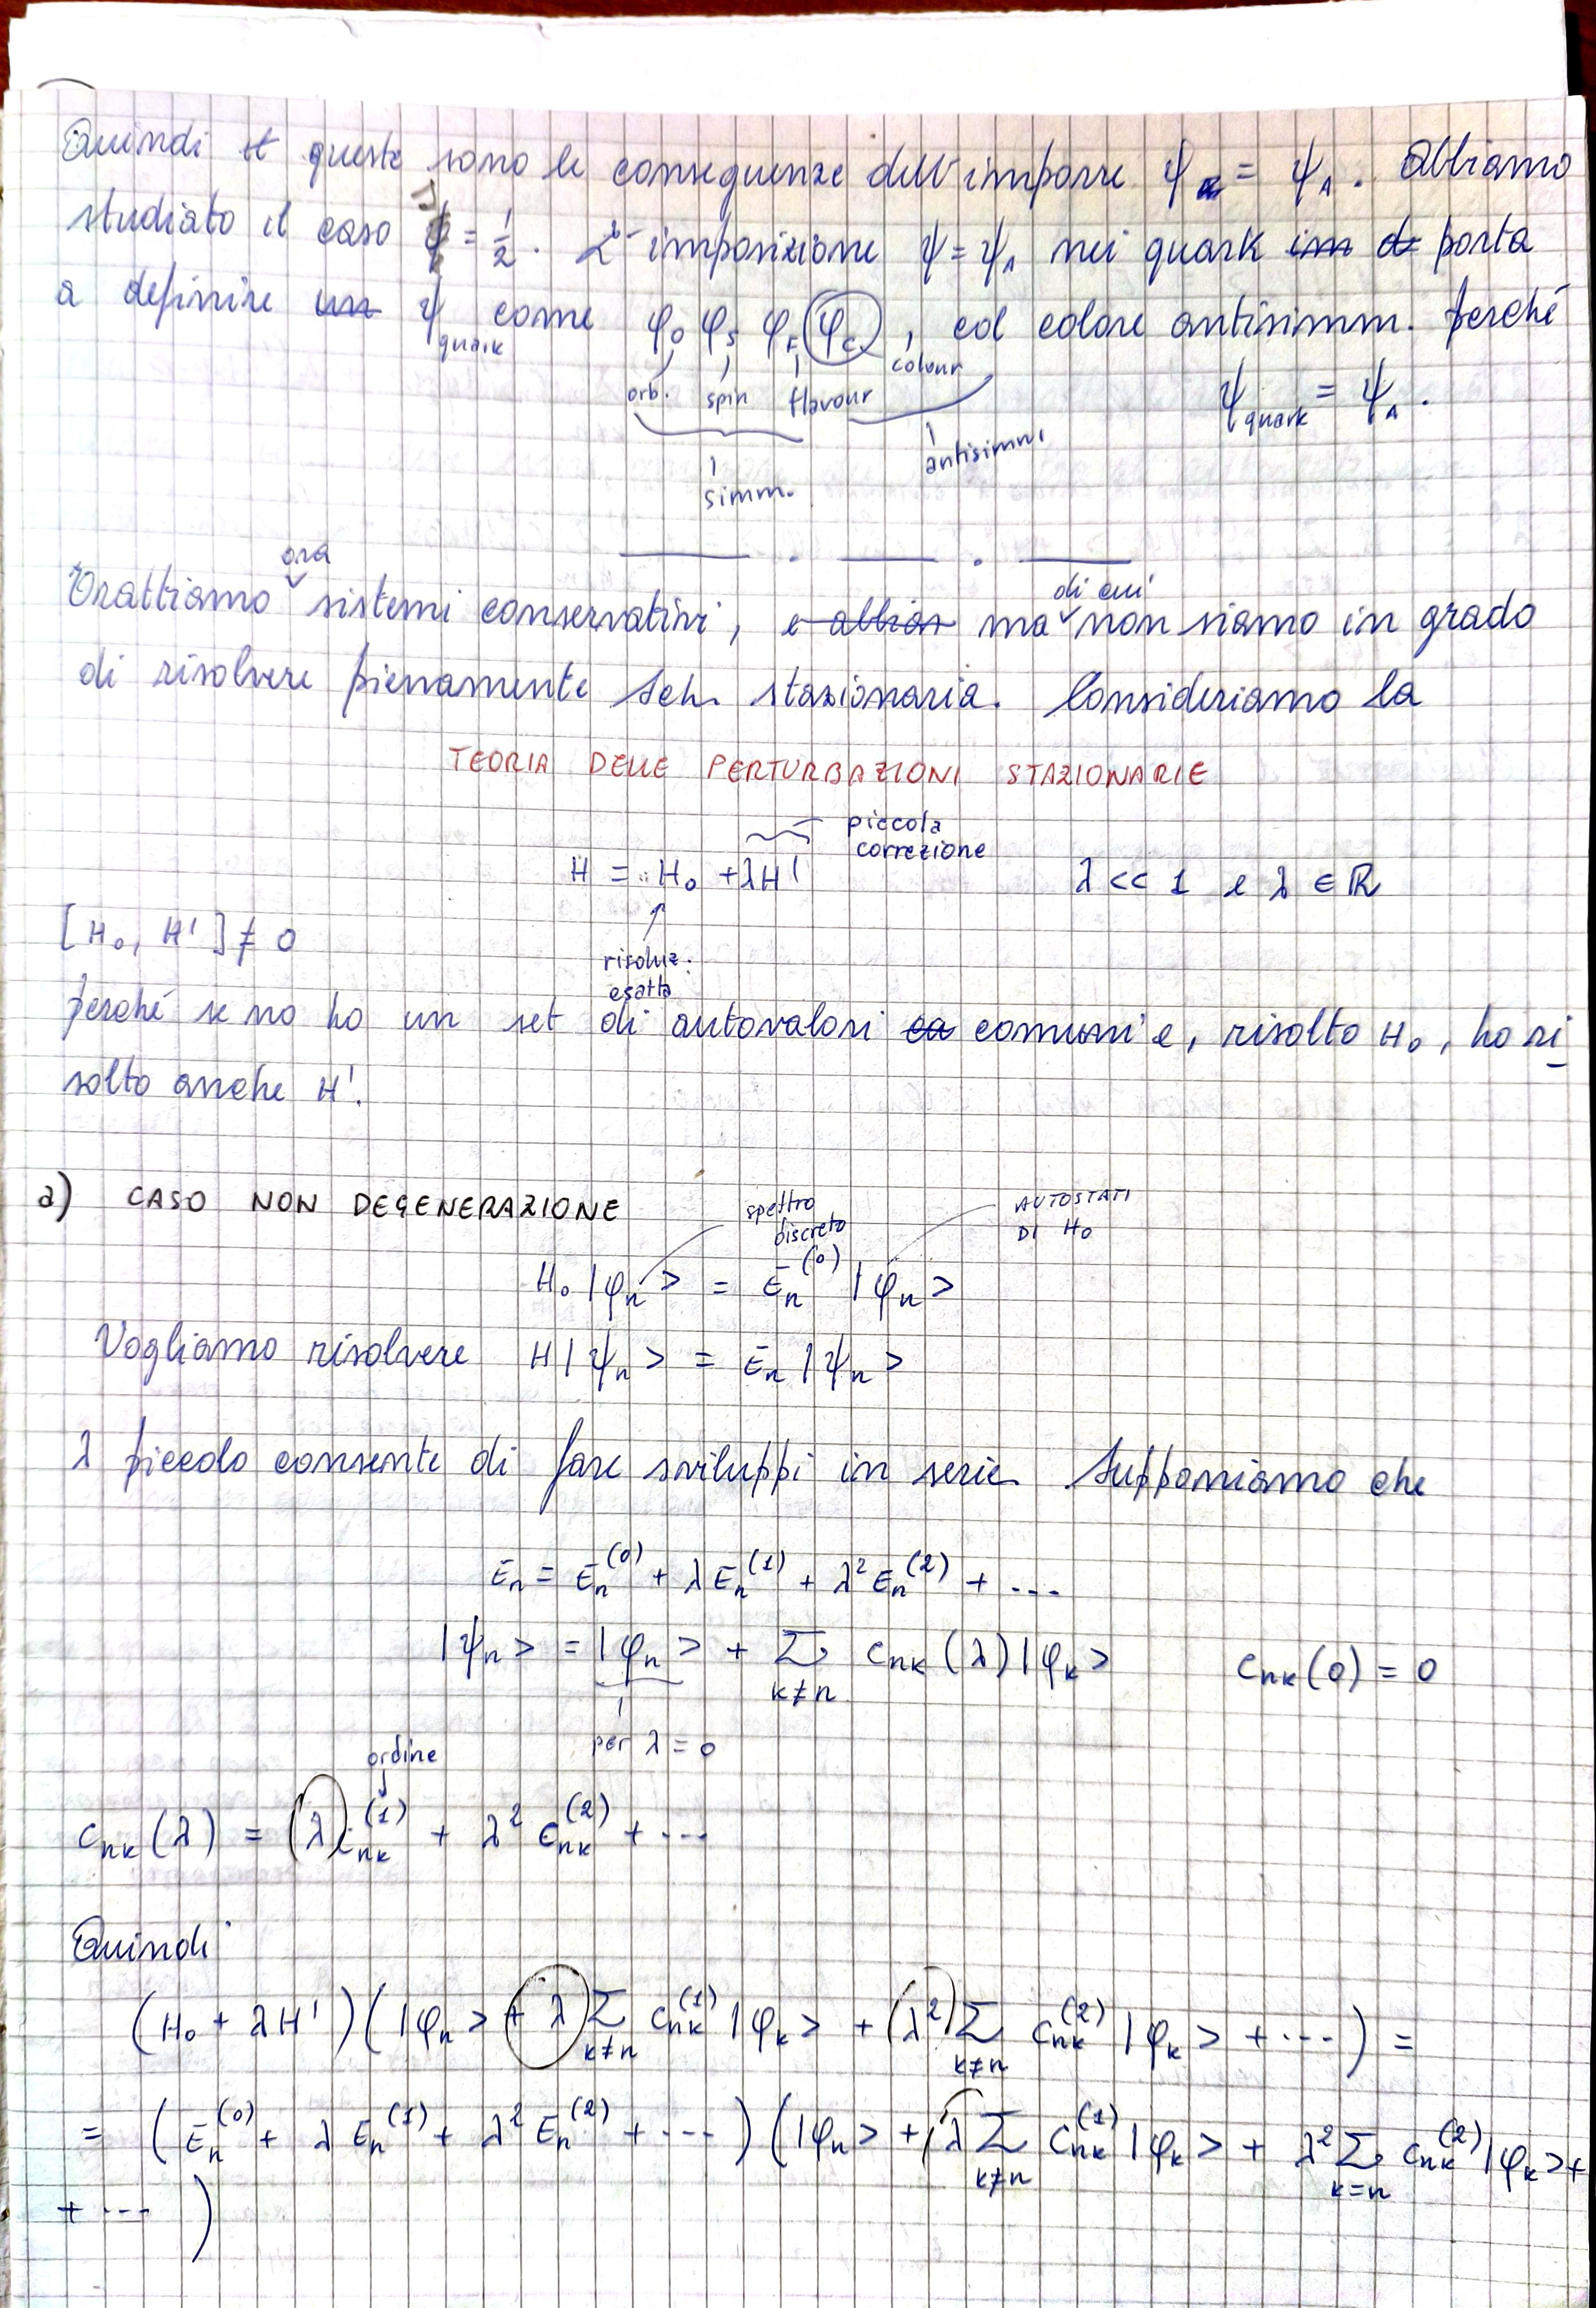 Quindi queste sono le conseguenze dell'imporre ψ = ψ_A. Abbiamo
studiato il caso = 1/2. L'imposizione ψ = ψ_A nei quark porta
a definire ψ_quark come φ_O φ_S φ_F φ_C, col colore antisimm. perché
orb. spin flavour colour
ψ_quark = ψ_A.
antisimm.
simm.
ora
Trattiamo sistemi conservativi, ma di cui non siamo in grado
di risolvere pienamente Sch. stazionaria. Consideriamo la
TEORIA DELLE PERTURBAZIONI STAZIONARIE
piccola
correzione
H = H₀ + λH' λ << 1 e λ ∈ ℝ
[H₀, H'] ≠ 0
risoluz.
esatta
perché se no ho un set di autovalori comuni e, risolto H₀, ho ri
solto anche H'.
a) CASO NON DEGENERAZIONE
spettro
discreto
AUTOSTATI
DI H₀
H₀ |φ_n> = E_n^(0) |φ_n>
Vogliamo risolvere H |ψ_n> = E_n |ψ_n>
λ piccolo consente di fare sviluppi in serie. Supponiamo che
E_n = E_n^(0) + λ E_n^(1) + λ² E_n^(2) + ...
|ψ_n> = |φ_n> + Σ_{k≠n} c_nk (λ) |φ_k> c_nk (0) = 0
per λ = 0
ordine
c_nk (λ) = λ c_nk^(1) + λ² c_nk^(2) + ...
Quindi
(H₀ + λH')(|φ_n> + λ Σ_{k≠n} c_nk^(1) |φ_k> + λ² Σ_{k≠n} c_nk^(2) |φ_k> + ...) =
= (E_n^(0) + λ E_n^(1) + λ² E_n^(2) + ...)(|φ_n> + λ Σ_{k≠n} c_nk^(1) |φ_k> + λ² Σ_{k=n} c_nk^(2) |φ_k> +
+ ...)